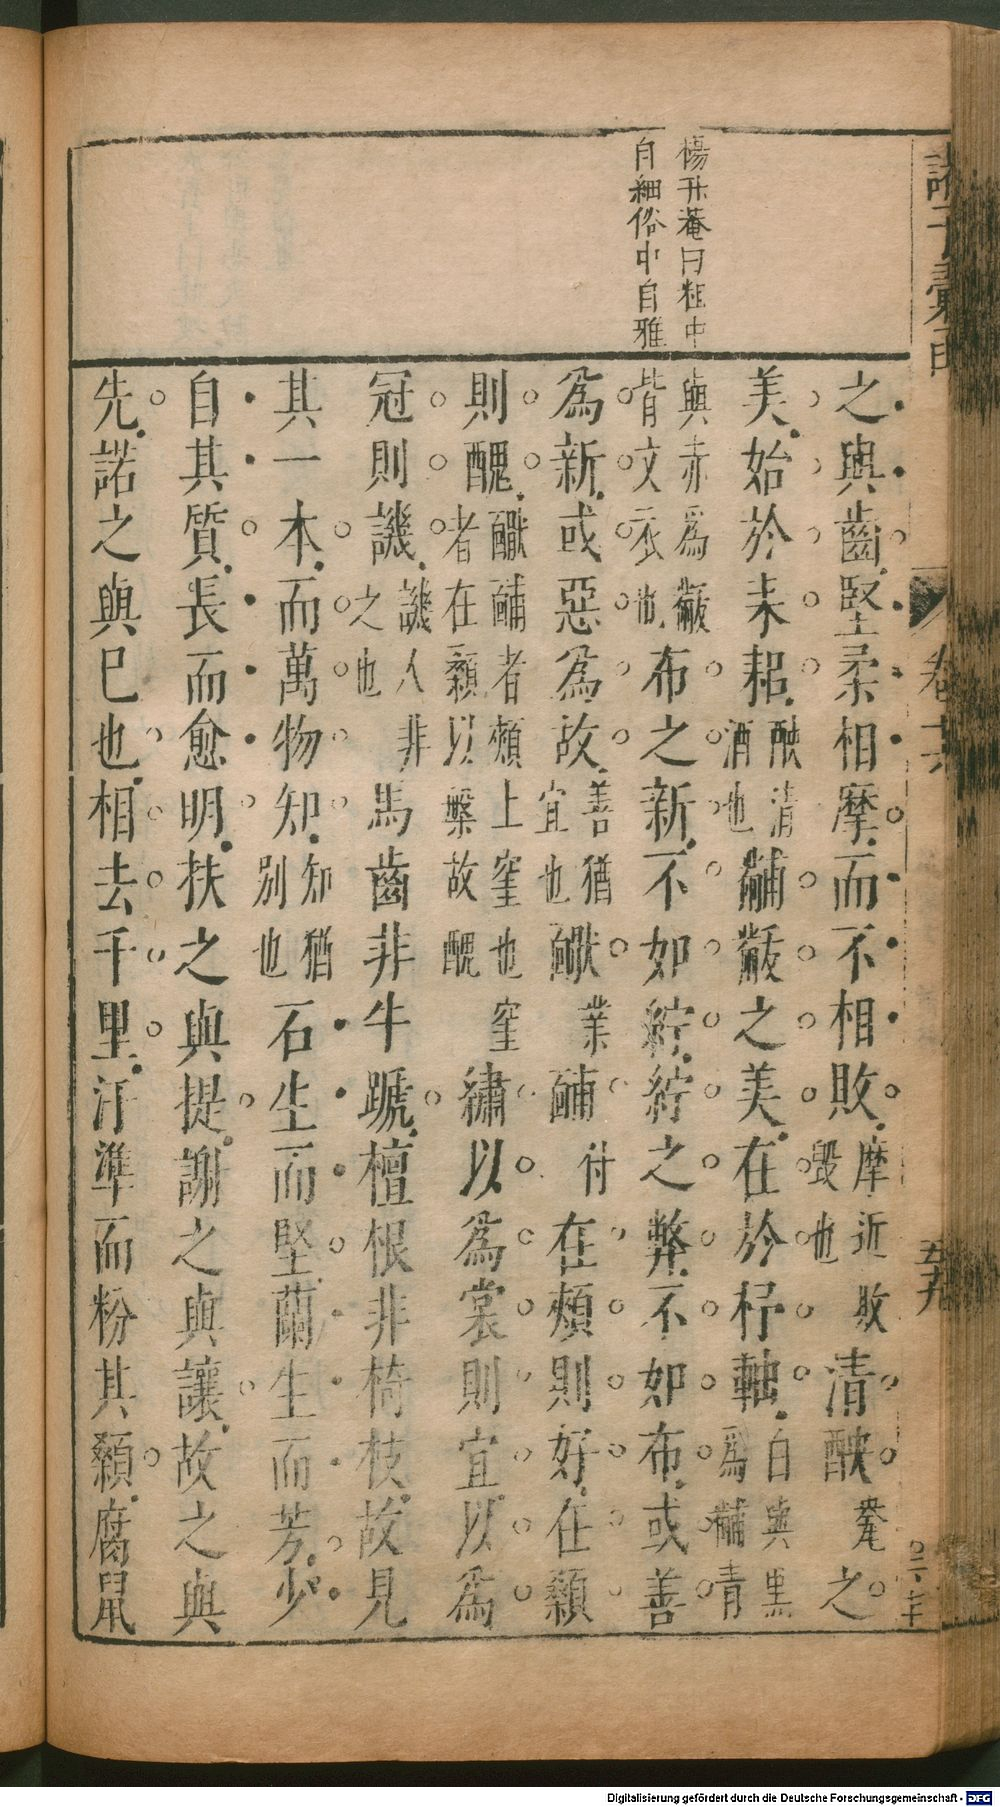 楊升菴曰粗中
自細俗中自雅
之與齒堅柔相摩而不相敗摩近敗毀也清醠甕之
美始於耒耜醠清酒也黼黻之美在於杼軸白與黑為黼青
與赤為黻背文衣也布之新不如紵紵之弊不如布或善
為新或惡為故善猶宜也𪘏業䩉付在頰則好在顙
則醜𪘏䩉者頰上窐也窐者在顙以槃故醜繡以為裳則宜以為
冠則譏譏人非之也馬齒非牛蹏檀根非椅枝故見
其一本而萬物知知猶別也石生而堅蘭生而芳少
自其質長而愈明扶之與提謝之與讓故之與
先諾之與已也相去千里汙準而粉其顙腐鼠
卷十六
五九
Digitalisierung gefördert durch die Deutsche Forschungsgemeinschaft - DFG